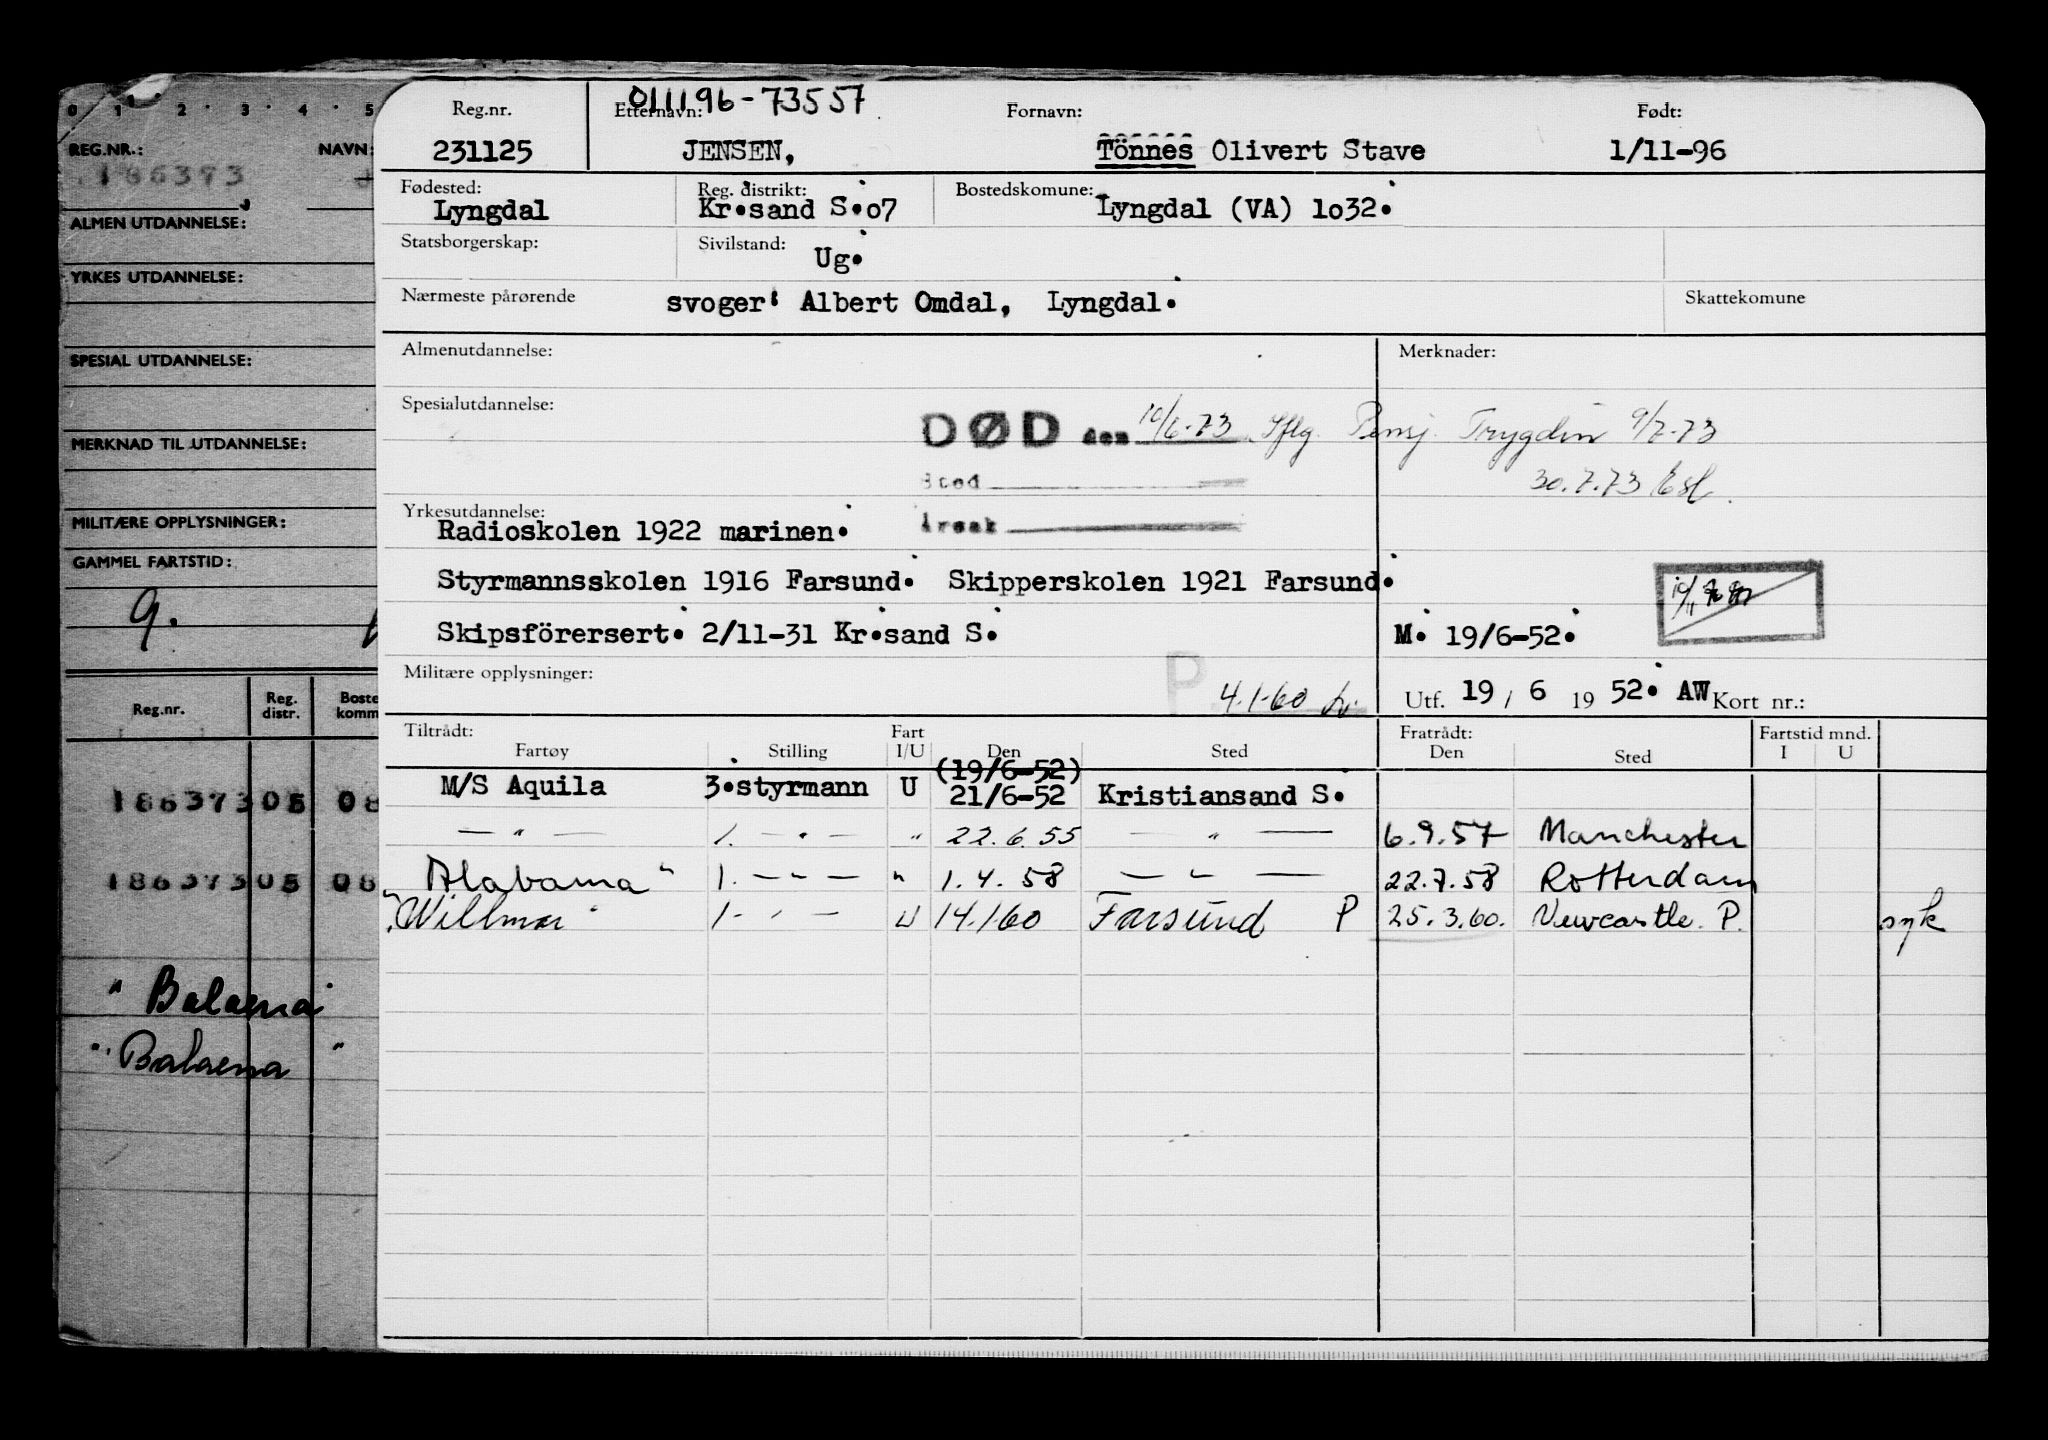 0 1 2 3 4 5
REG.NR.: NAVN:
ALMEN UTDANNELSE:
YRKES UTDANNELSE:
SPESIAL UTDANNELSE:
MERKNAD TIL UTDANNELSE:
MILITÆRE OPPLYSNINGER:
GAMMEL FARTSTID:
9.
Reg.nr. Reg. distr. Boste komm
186373 05 08
186373 05 08
"Balaena"
"Balaena"
011196-73557
Reg.nr. Etternavn: Fornavn: Født:
231125 JENSEN, Tönnes Olivert Stave 1/11-96
Fødested: Reg. distrikt: Bostedskomune:
Lyngdal Kr.sand S.o7 Lyngdal (VA) 1o32.
Statsborgerskap: Sivilstand:
Ug.
Nærmeste pårørende svoger: Albert Omdal, Lyngdal. Skattekomune
Almenutdannelse: Merknader:
Spesialutdannelse:
DØD den 10/6-73 Iflg. Pensj. Trygden 9/7-73
Sted 30.7.73
Yrkesutdannelse:
Radioskolen 1922 marinen. Årsak
Styrmannsskolen 1916 Farsund. Skipperskolen 1921 Farsund.
Skipsförersert. 2/11-31 Kr.sand S. M. 19/6-52.
Militære opplysninger: P 4.1.60 Utf. 19 / 6 19 52. AW Kort nr.:
Tiltrådt: Fart Fratrådt: Fartstid mnd.
Fartøy Stilling I/U Den Sted Den Sted I U
(19/6-52)
M/S Aquila 3.styrmann U 21/6-52 Kristiansand S.
— " — 1. — " — " 22.6.55 — " — 6.9.57 Manchester
Alabama" 1. — " — " 1.4.58 — " — 22.7.58 Rotterdam
"Willmar" 1. — " — U 14.1.60 Farsund P 25.3.60. Newcastle. P. syk